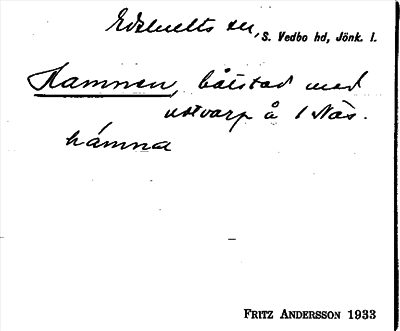 Edshults sn, S. Vedbo hd, Jönk. l.
Hamnen, båtstad med
notvarp å 1 Näs.
hámna
FRITZ ANDERSSON 1933